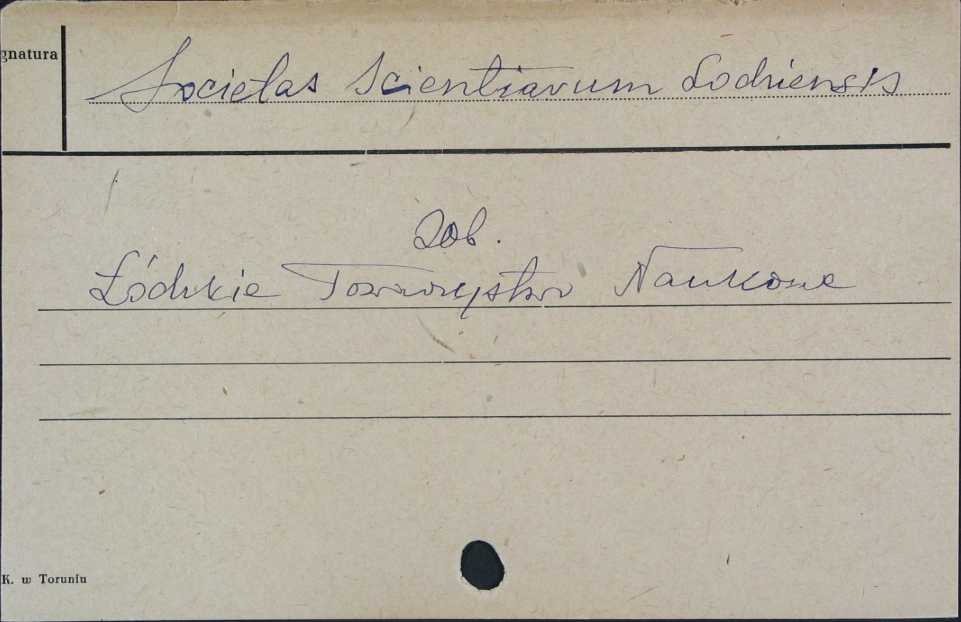 gnatura
Societas Scientiarum Lodziensis
Zob.
Łódzkie Towarzystwo Naukowe
K. w Toruniu